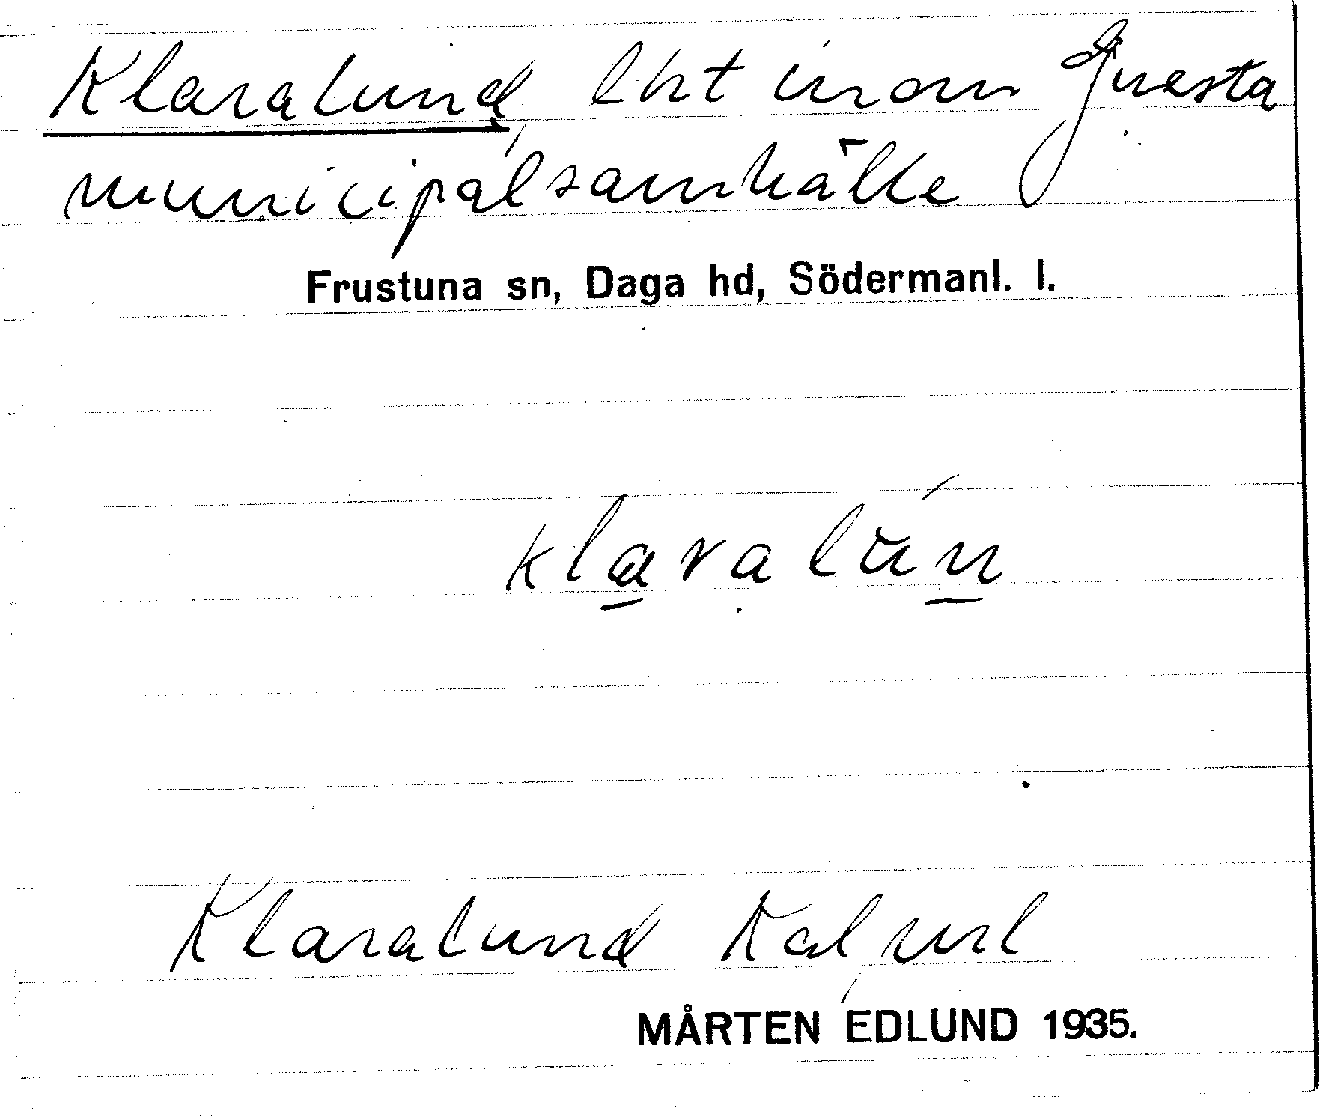 Klaralund, lht inom Gnesta
municipalsamhälle
Frustuna sn, Daga hd, Södermanl. l.
klaralún
Klaralund
MÅRTEN EDLUND 1935.